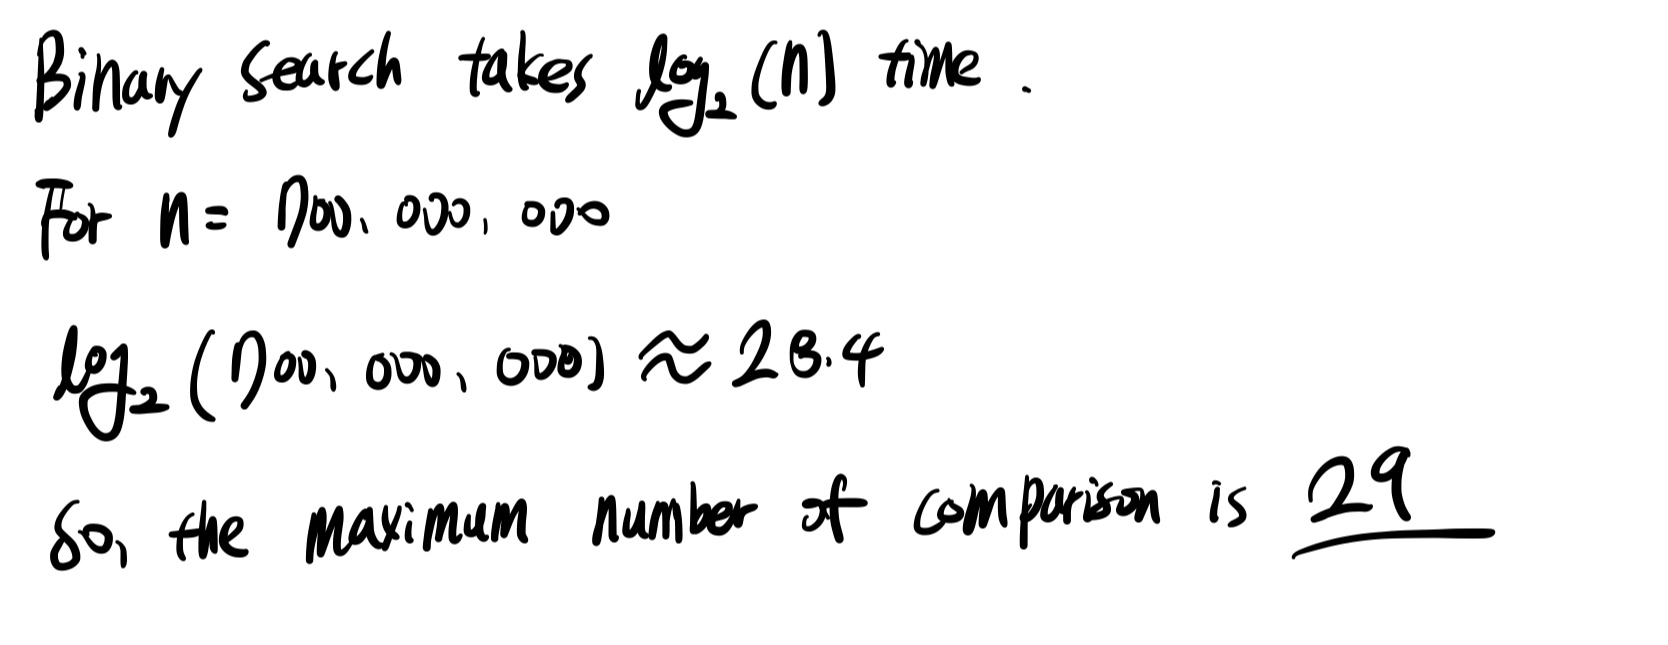 Binary search takes log₂(n) time.
For n = 700,000,000
log₂(700,000,000) ≈ 28.4
So, the maximum number of comparison is 29